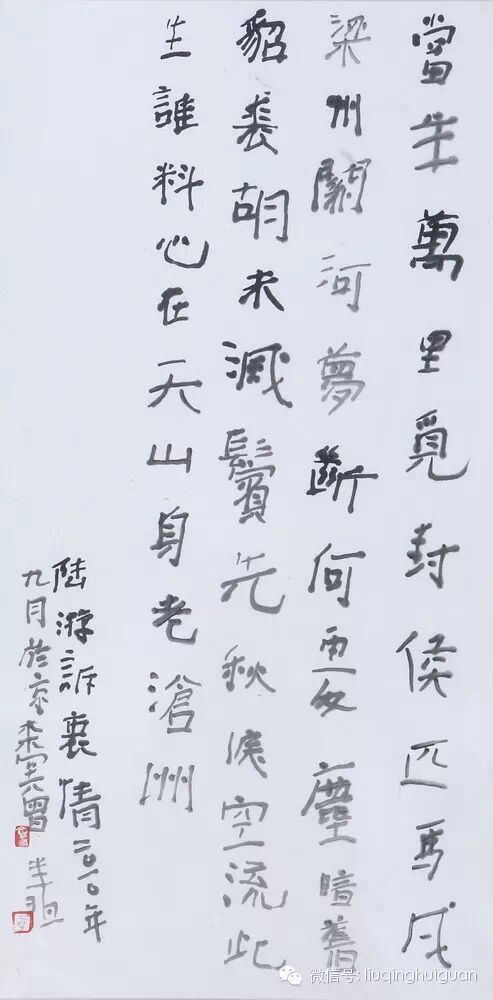 當年萬里覓封侯匹馬戍
梁州關河夢斷何處塵暗舊
貂裘胡未滅鬢先秋淚空流此
生誰料心在天山身老滄州
陸游訴衷情二〇一〇年
九月於京
微信号: liuqinghuiguan